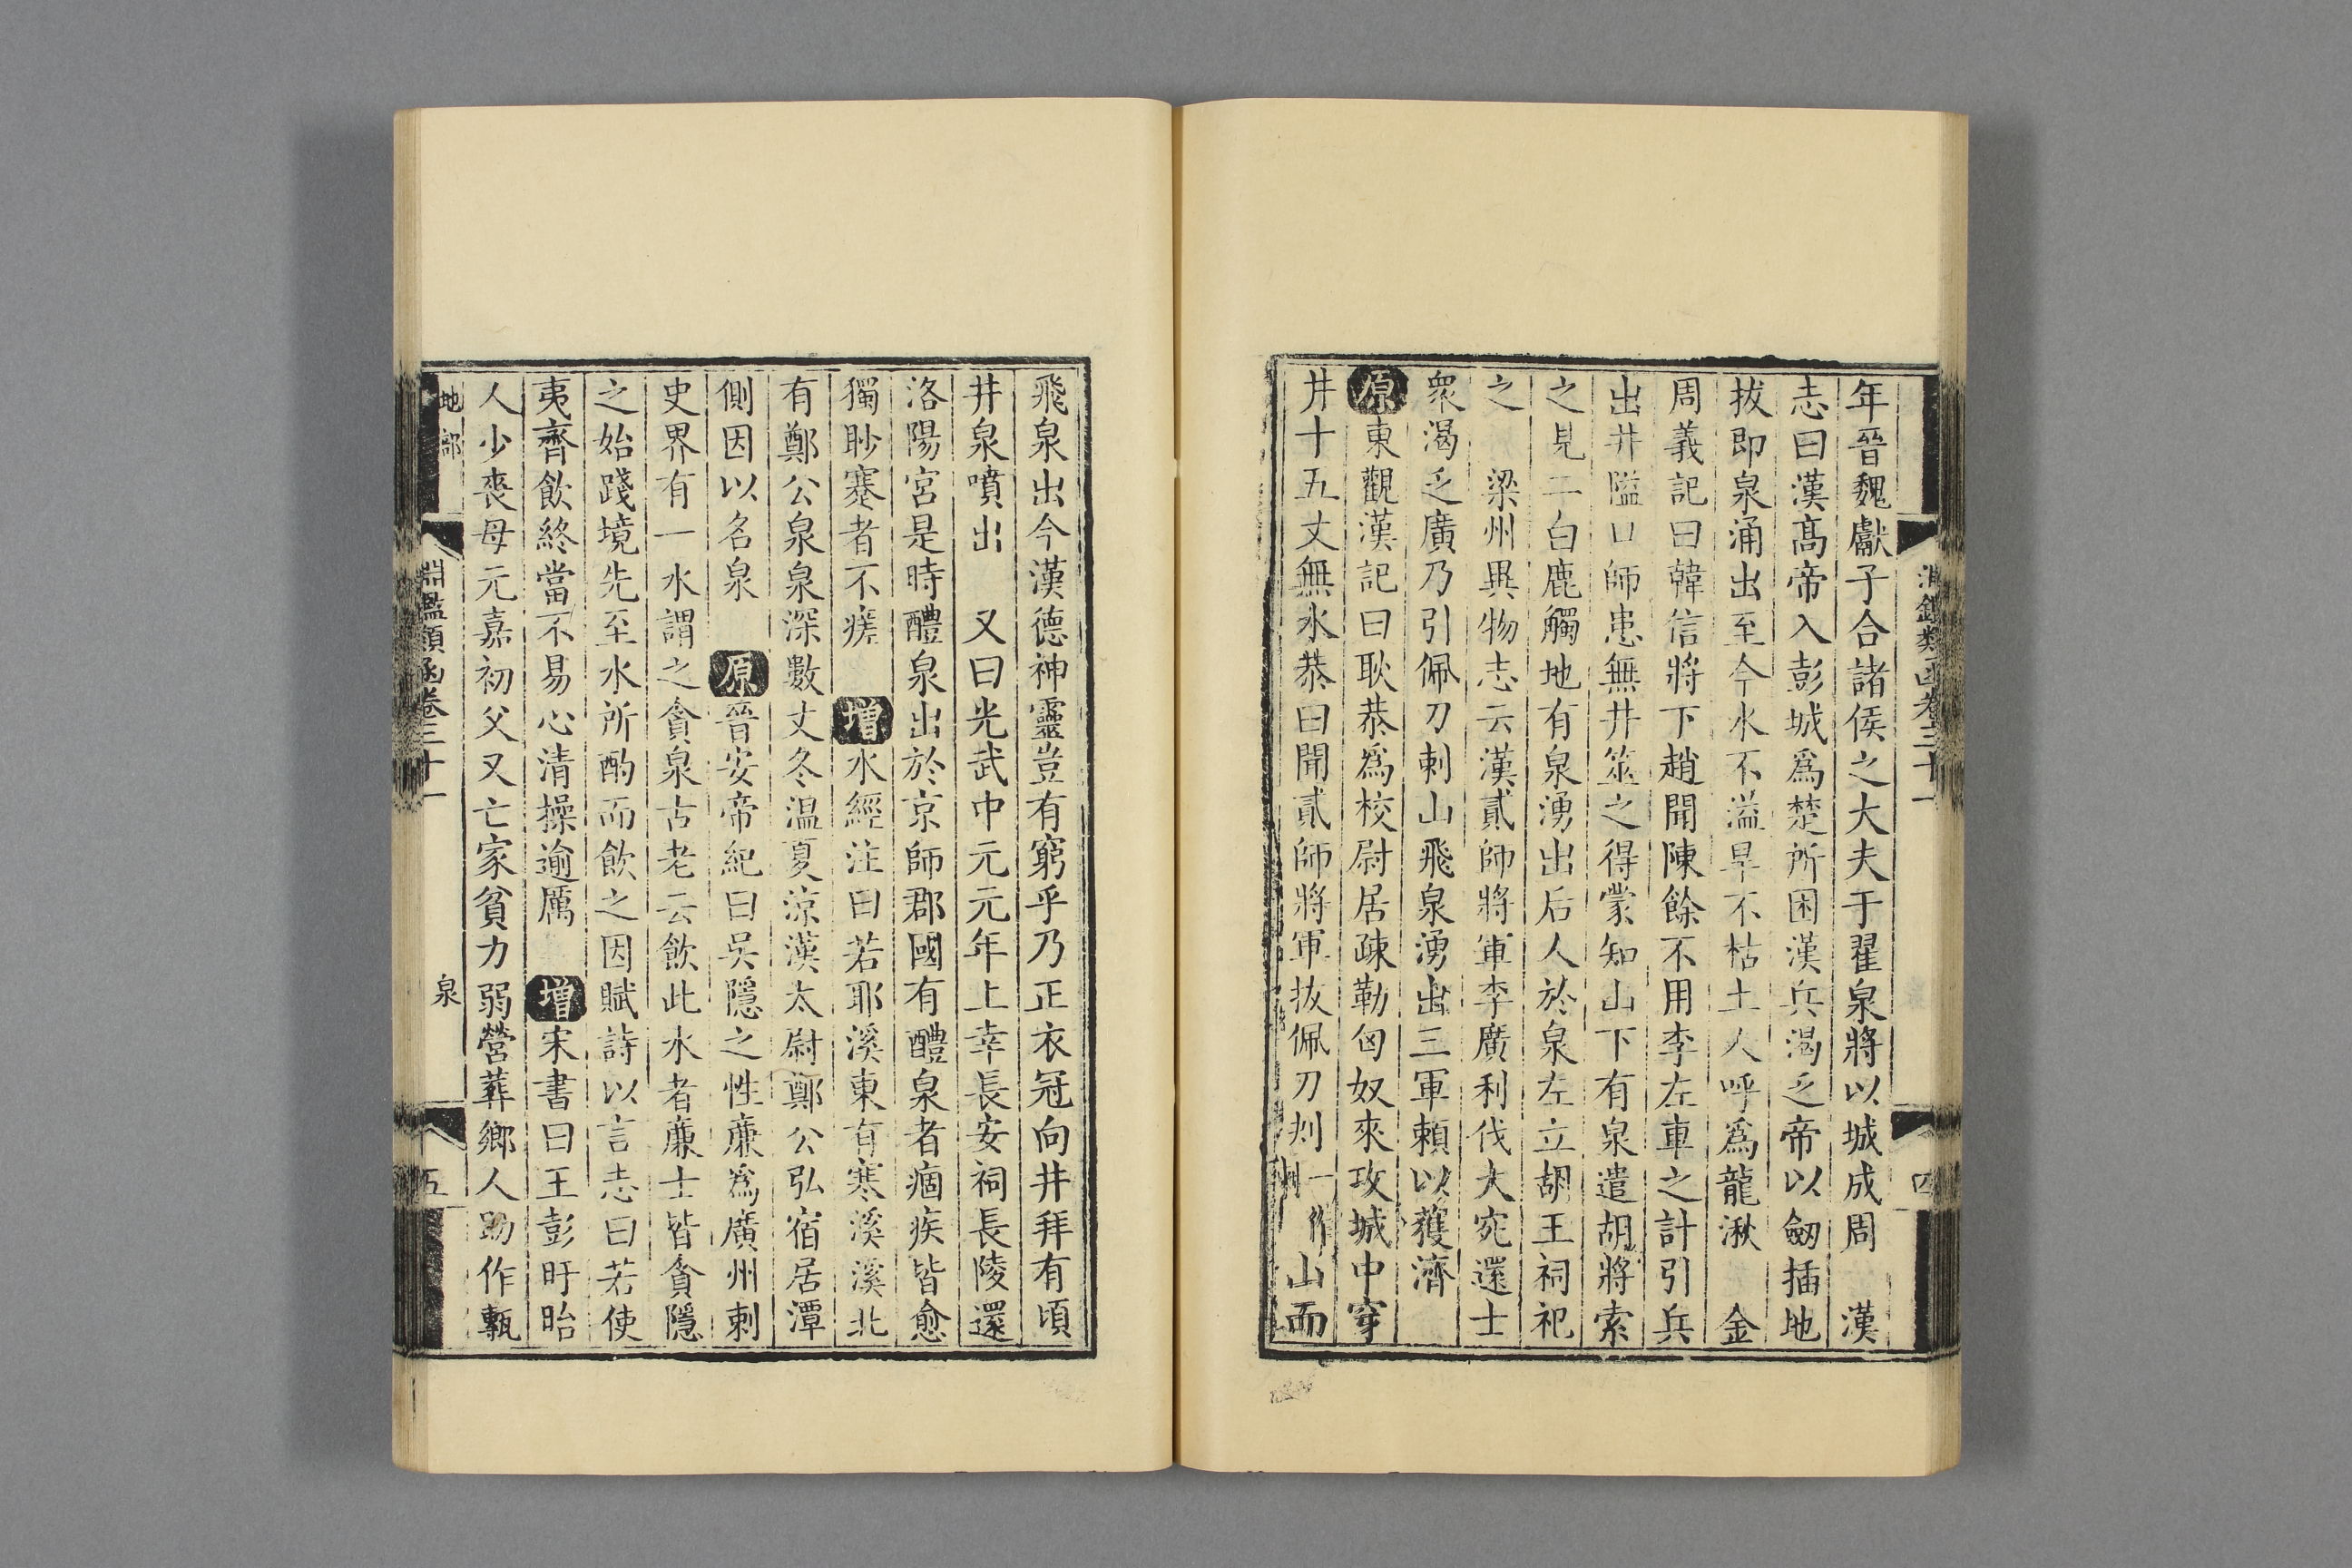 年晉魏獻子合諸侯之大夫于翟泉將以城成周　漢
志曰漢高帝入彭城爲楚所困漢兵渴乏帝以劒插地
拔即泉涌出至今水不溢旱不枯土人呼爲龍湫　金
周義記曰韓信將下趙聞陳餘不用李左車之計引兵
出井隘口師患無井筮之得蒙知山下有泉遣胡將索
之見二白鹿觸地有泉湧出后人於泉左立胡王祠祀
之　梁州異物志云漢貳師將軍李廣利伐大宛還士
衆渴乏廣乃引佩刀刺山飛泉湧出三軍賴以獲濟
原東觀漢記曰耿恭爲校尉居疎勒匈奴來攻城中穿
井十五丈無水恭曰聞貳師將軍拔佩刀刿一作山而
淵鑑類函卷三十一　四
飛泉出今漢德神靈豈有窮乎乃正衣冠向井拜有頃
井泉噴出　又曰光武中元元年上幸長安祠長陵還
洛陽宮是時醴泉出於京師郡國有醴泉者痼疾皆愈
獨眇蹇者不瘥　增水經注曰若耶溪東有寒溪溪北
有鄭公泉泉深數丈冬温夏涼漢太尉鄭公弘宿居潭
側因以名泉　原晉安帝紀曰吳隱之性亷爲廣州刺
史界有一水謂之貪泉古老云飲此水者亷士皆貪隱
之始踐境先至水所酌而飲之因賦詩以言志曰若使
夷齊飲終當不易心清操逾厲　增宋書曰王彭盱眙
人少喪母元嘉初父又亡家貧力弱營葬鄉人助作甎
地部　淵鑑類函卷三十一　泉　五